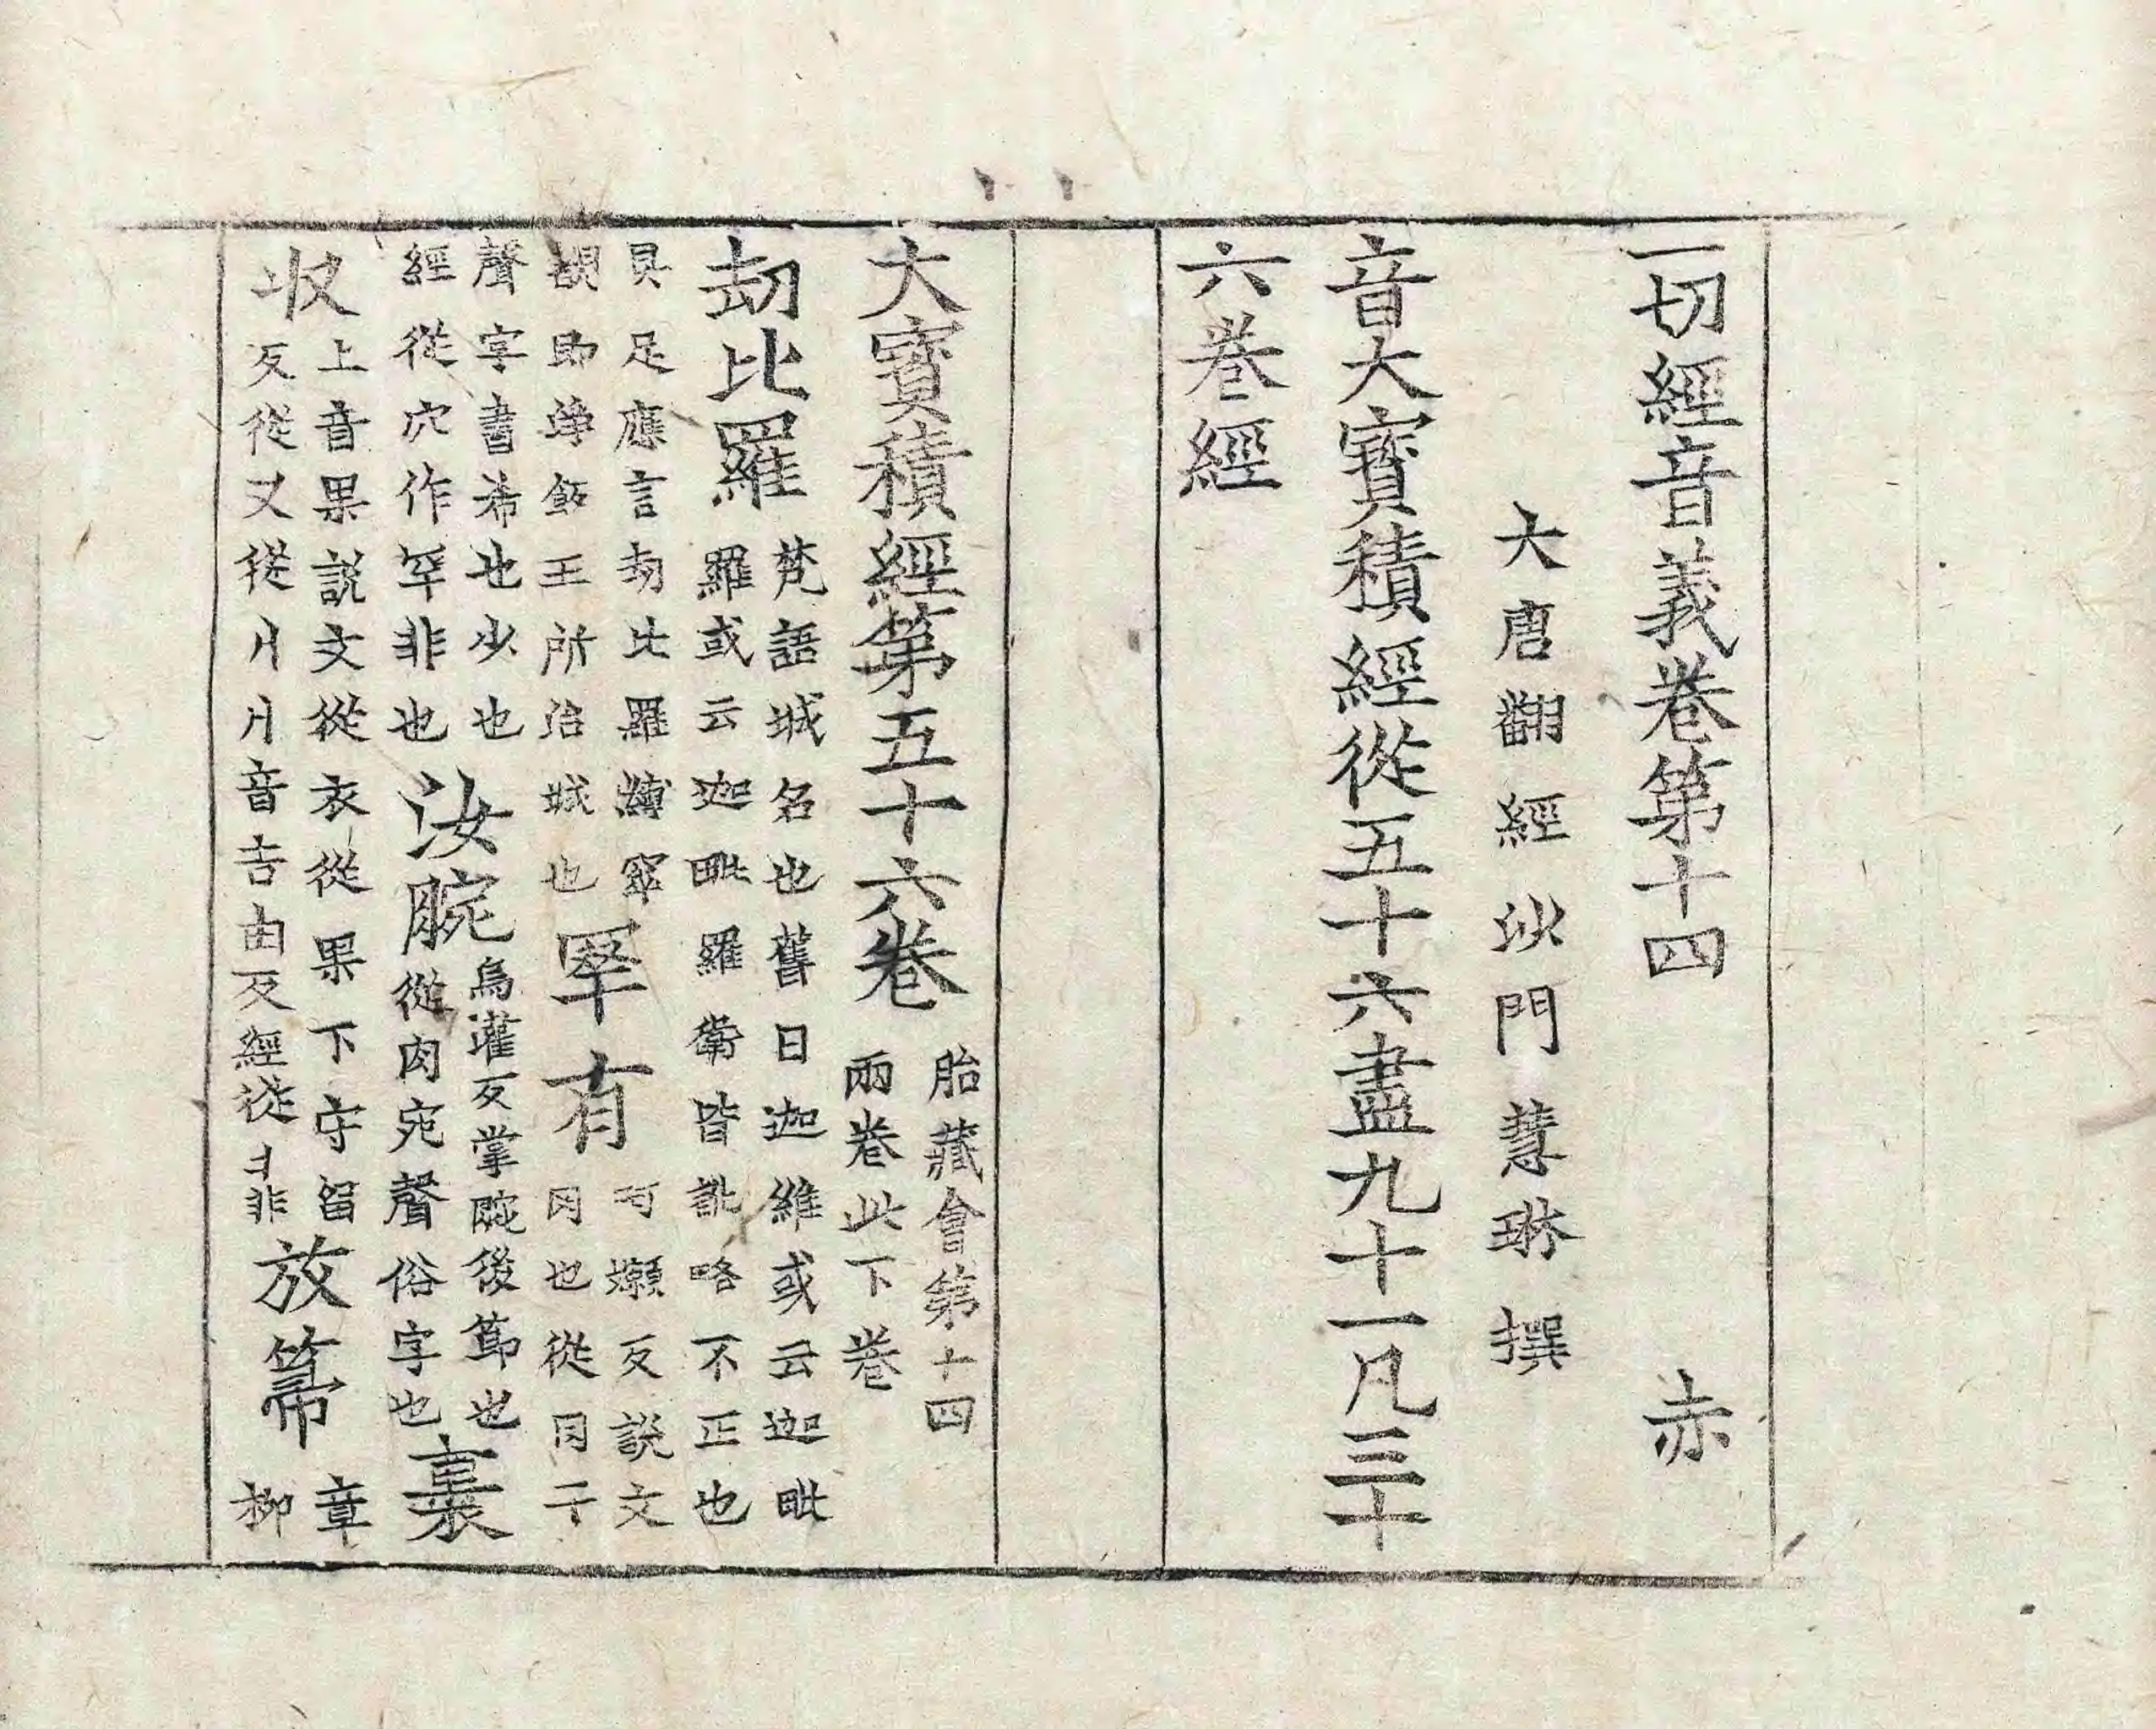 一切經音義卷第十四 赤
大唐翻經沙門慧琳撰
音大寶積經從五十六盡九十一凡三十
六卷經
大寶積經第五十六卷 胎藏會第十四
兩卷此下卷
劫比羅 梵語城名也舊曰迦維或云迦毗
羅或云迦毗羅衛皆訛略不正也
具足應言劫比羅
覩即淨飯王所治城也
罕有 呵嬾反說文
罔也從冈干
聲字書希也少也
經從穴作罕非也
汝腕 烏灌反掌腕後節也
從肉宛聲俗字也
裹收 上音果說文從衣從果下守留
反從又從丩丩音吉由反經從丬非
放箒 章
柳